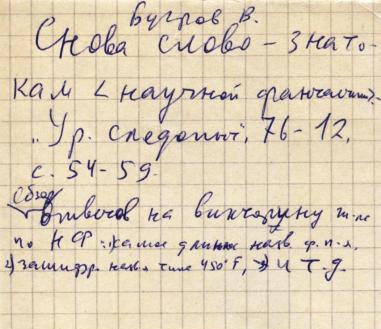 Бугров В.
Снова слово – знато-
кам < научной фантастики>.
"Ур. следопыт", 76-12,
с. 54-59.
Обзор
ответов на викторину ж-ла
по НФ: 1) самое длин. назв. ф. п-я,
2) зашифр. назв. типа 450° F, 3) и т.д.